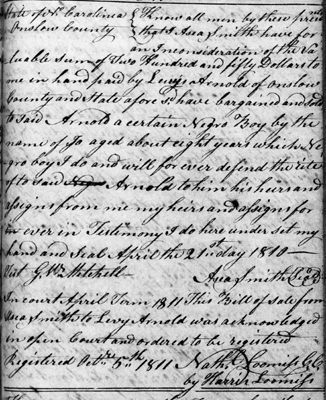 State of No. Carolina } Know all men by these presents
Onslow County } that I Asa Smith have for
an Inconsideration of the Va
luable sum of Two Hundred and fifty Dollars to
me in hand paid by Levy Arnold of onslow
County and State afore Sd. have bargained and sold
to said Arnold a certain Negro Boy by the
name of Jo aged about eight years which Ne
gro boy I do and will for ever defend the rite
of to said Arnold to him his heirs and
assigns from me my heirs and assigns for
ever in Testimony I do here under set my
hand and Seal April the 21st day 1810
Test G. Wm. Mitchell
Asa Smith
In court April Term 1811 This Bill of sale from
Asa Smith to Levy Arnold was acknowledged
in open Court and ordered to be registered
Registered Octr. 5th 1811 Nathl. Loomiss C.C.
by Harris Loomiss